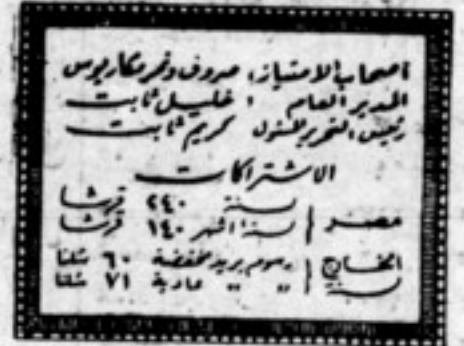 اصحاب الامتياز: صروف ونمر ومكاريوس
المدير العام : خليل ثابت
رئيس التحرير المسئول كريم ثابت
الاشتراكات
مصر | سنة ٢٤٠ قرشا
ستة اشهر ١٤٠ قرشا
الخارج | رسوم بريد مخفضة ٦٠ شلنا
سنة " " عادية ٧١ شلنا